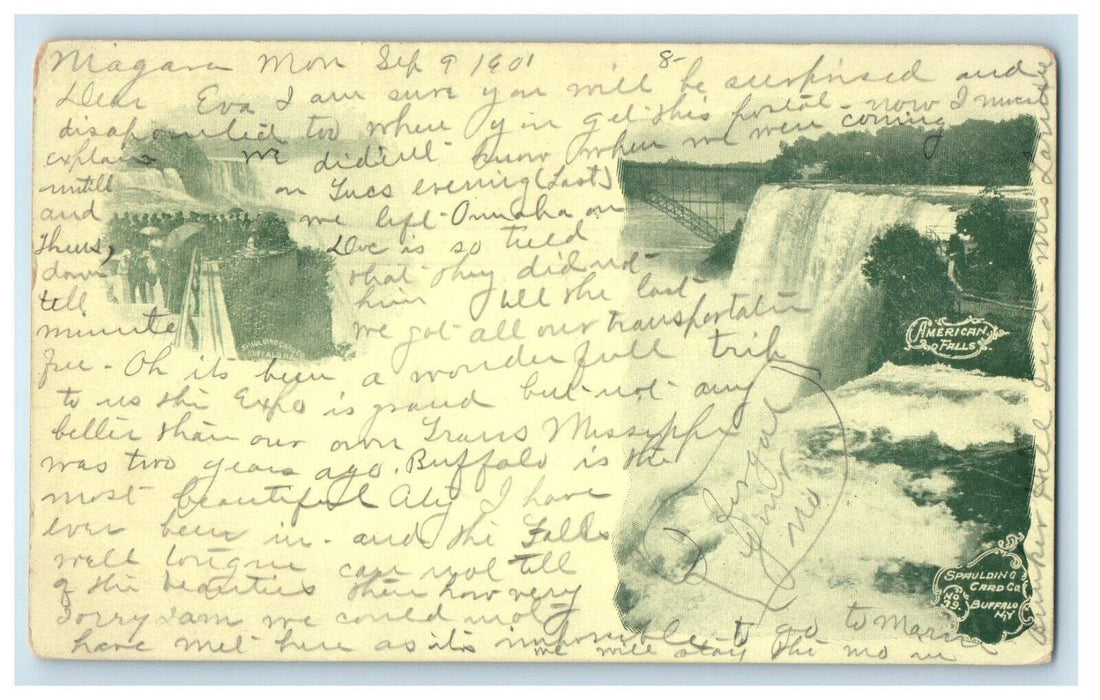 Niagara Mon Sep 9 1901 8-
Dear Eva I am sure you will be surprised and
disapointed too when you get this postal - now I must
explain we dident know when we were coming
untill on Tues evening (Last)
and we left Omaha on
Thurs, Doc is so tield
down that they did not
tell him till the last
minute we got all our transportation
free - Oh its been a wonderfull trip
to us the Expo is grand but not any
better than our own Trans Missippi
was two years ago. Buffalo is the
most beautiful City I have
ever been in - and the Falls
well tongue can not tell
of the beauties then how very
Sorry I am we could not
have met here as its impossible to go to Marion
we will stay the mo in
Bunker Hill Ind - mrs
AMERICAN
FALLS
SPAULDING
CARD CO.
No
79.
BUFFALO
N.Y.
SPAULDING CARD CO.
BUFFALO N.Y.
your